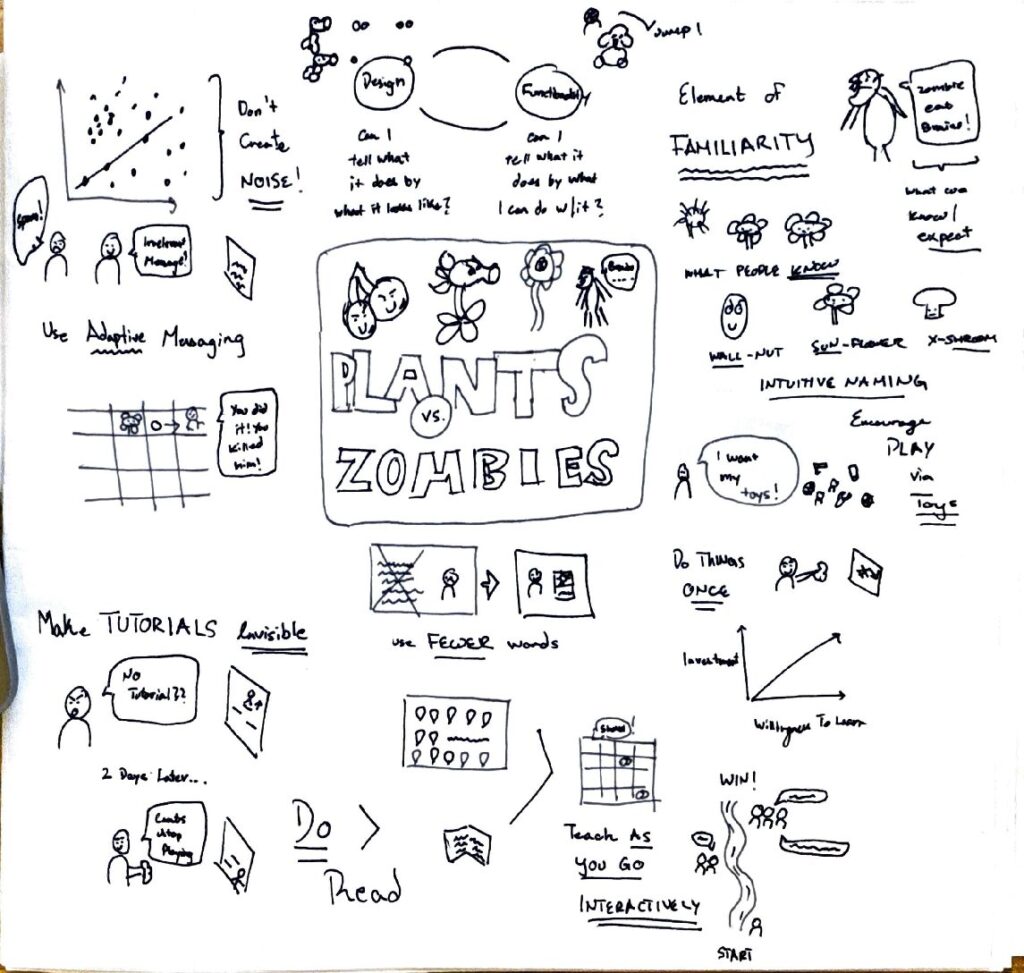 Jump!
Design
Functionality
Can I
tell what
it does by
what it looks like?
Can I
tell what it
does by what
I can do w/it?
Don't
Create
NOISE!
Spam!
Irrelevant
Message!
Use Adaptive Messaging
You did
it! You
killed
him!
Element of
FAMILIARITY
Zombie
eat
Brains!
what we
know/
expect
WHAT PEOPLE KNOW
WALL-NUT
SUN-FLOWER
X-SHROOM
INTUITIVE NAMING
Brains
....
PLANTS
VS.
ZOMBIES
Encourage
PLAY
via
Toys
I want
my
toys!
Do Things
ONCE
Investment
Willingness To Learn
use FEWER words
Make TUTORIALS Invisible
No
Tutorial??
2 Days Later...
Can't
stop
Playing
Do >
Read
Teach As
You Go
INTERACTIVELY
WIN!
START